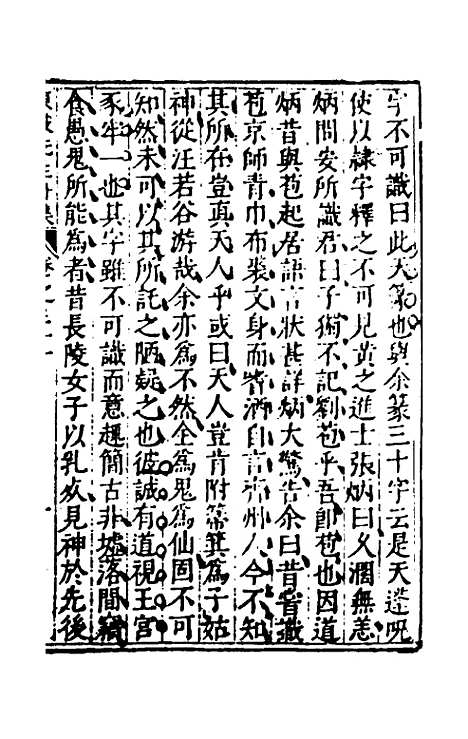 字不可識曰此天篆也與余篆三十字云是天蓬呪
使以隸字釋之不可見黃之進士張炳曰久濶無恙
炳問安所識君曰子獨不記劉苞乎吾卽苞也因道
炳昔與苞起居語言狀甚詳炳大驚告余曰昔嘗識
苞京師青巾布裘文身而嗜酒自言齊州人今不知
其所在豈真天人乎或曰天人豈肯附箒箕爲子姑
神從汪若谷游哉余亦爲不然全爲鬼爲仙固不可
知然未可以其所託之陋疑之也彼誠有道視王宮
豕牢一也其字雖不可識而意趣簡古非墟落間竊
食愚鬼所能爲者昔長陵女子以乳死見神於先後